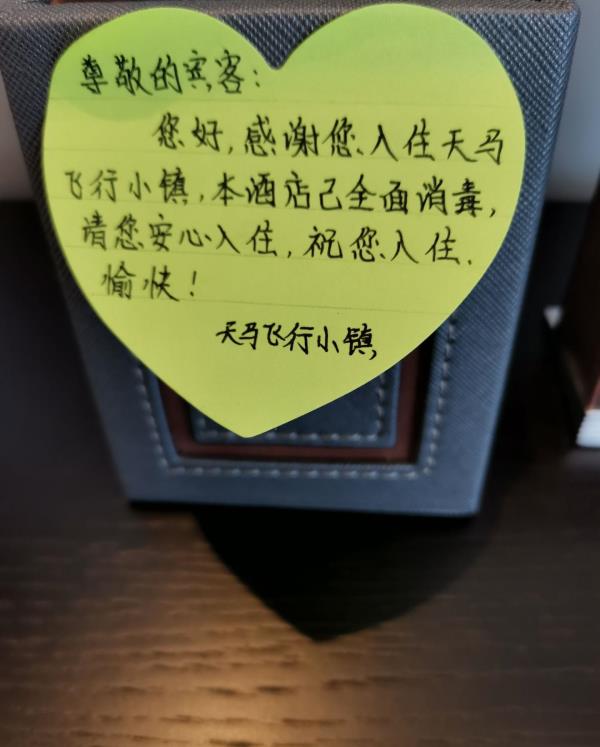 尊敬的宾客:
您好,感谢您入住天马
飞行小镇,本酒店已全面消毒,
请您安心入住,祝您入住
愉快!
天马飞行小镇